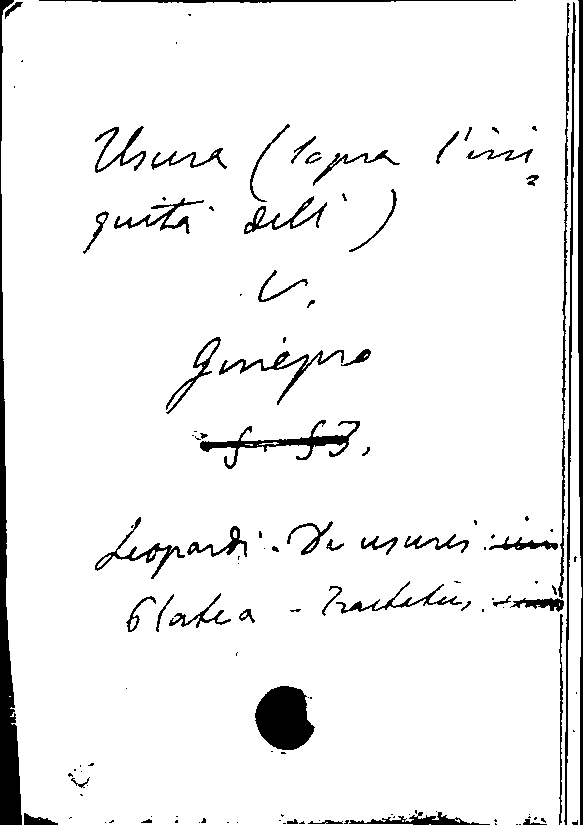 Usura (sopra l'ini=
quità dell')
V.
Ginepro
f. 53.
Leopardi. De usuris
Platea - Tractatus